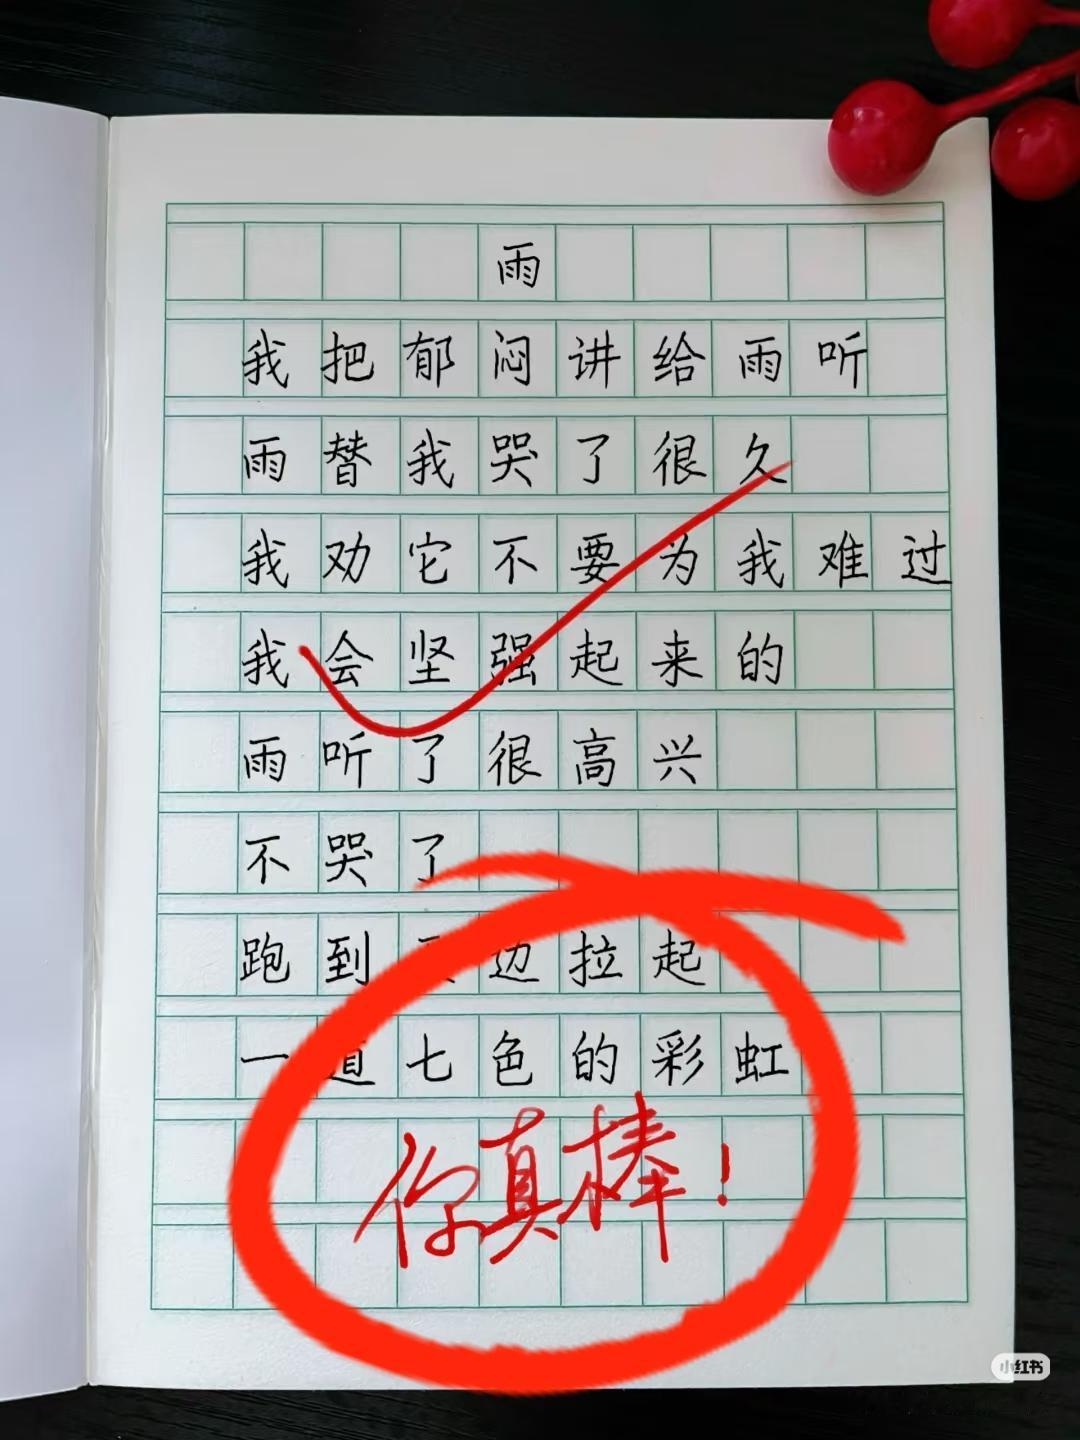 雨
我把郁闷讲给雨听
雨替我哭了很久
我劝它不要为我难过
我会坚强起来的
雨听了很高兴
不哭了
跑到边拉起
一道七色的彩虹
你真棒!
小红书